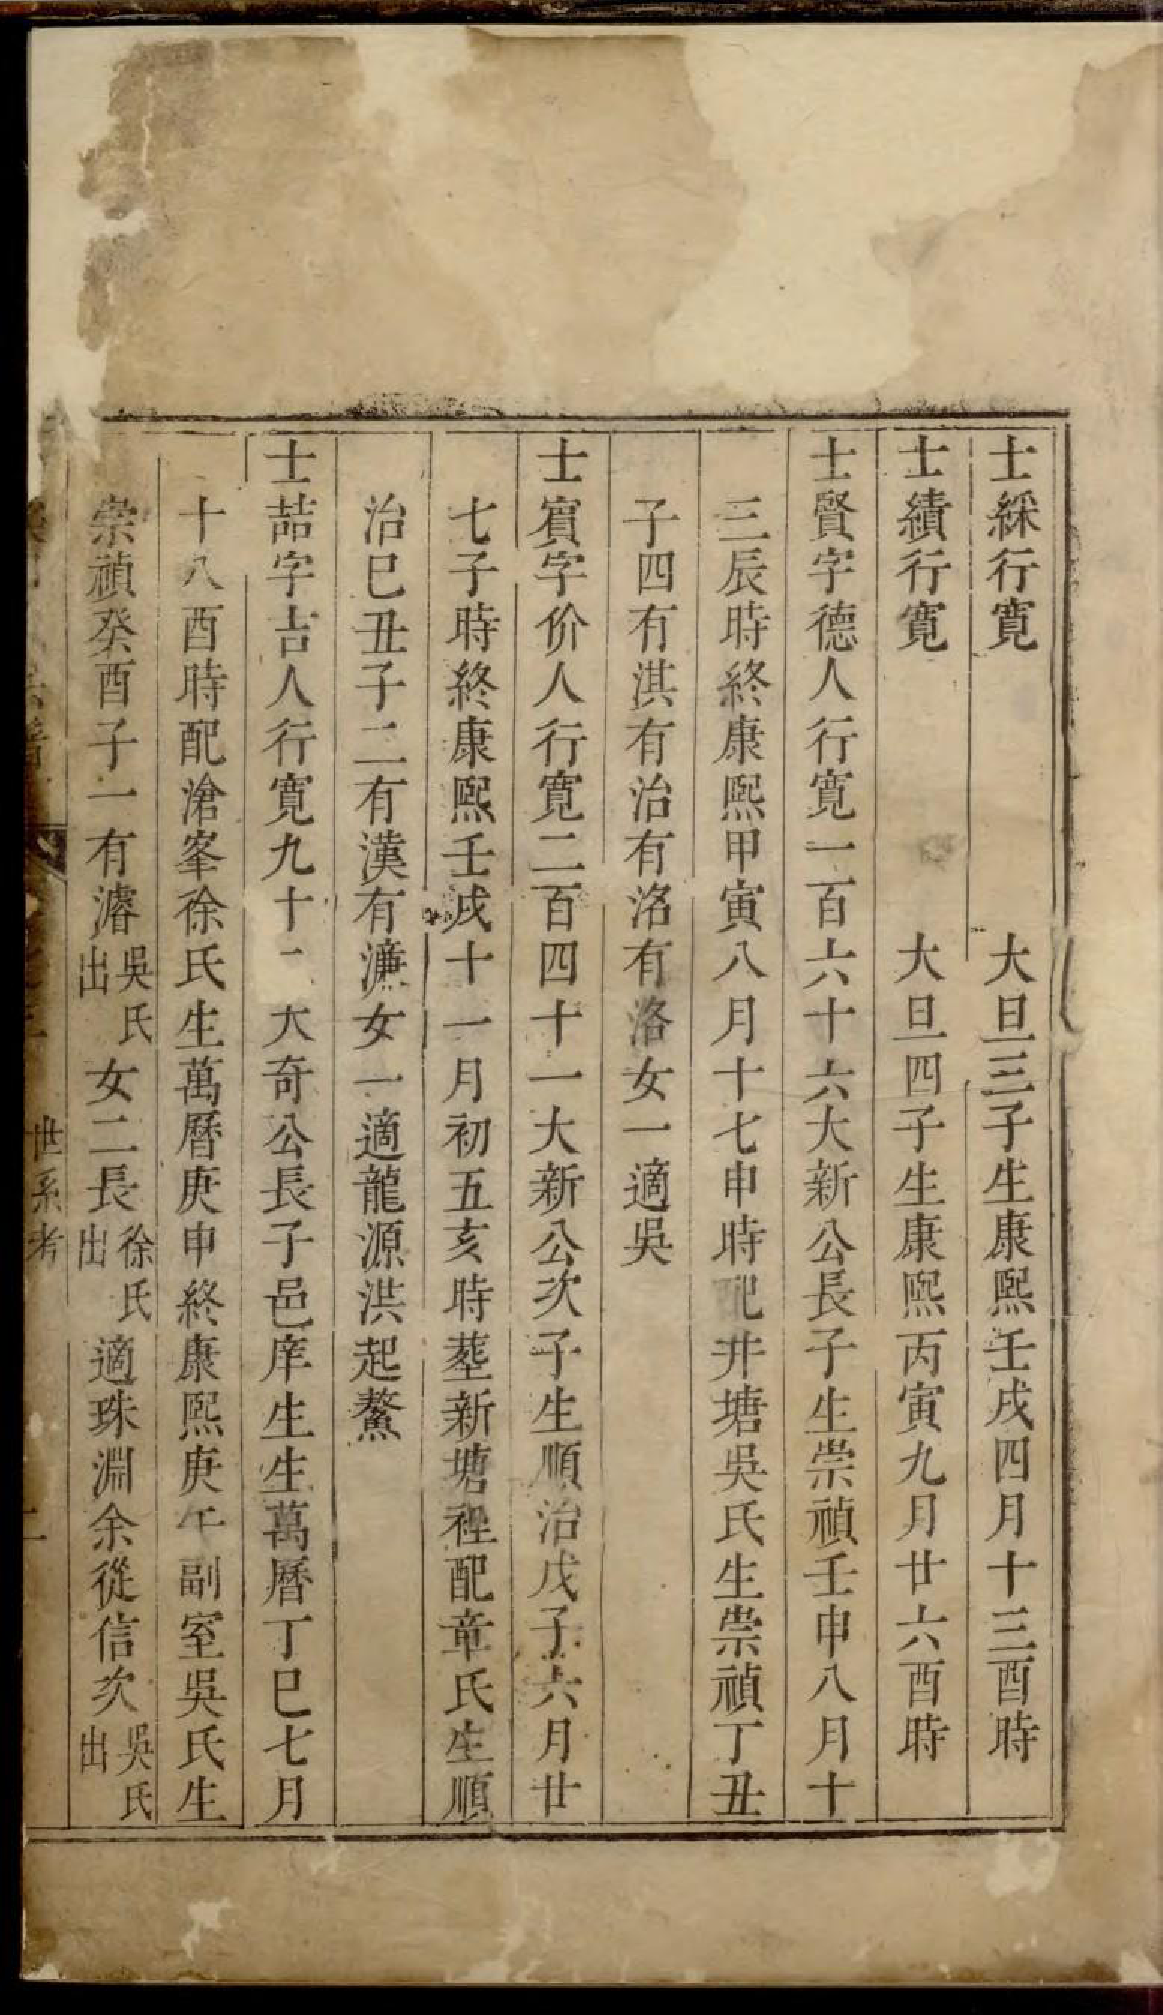 士綵行寬　大旦三子生康熙壬戌四月十三酉時
士績行寬　大旦四子生康熙丙寅九月廿六酉時
士賢字德人行寬一百六十六大新公長子生崇禎壬申八月十
三辰時終康熙甲寅八月十七申時配井塘吳氏生崇禎丁丑
子四有淇有治有洛有洛女一適吳
士賔字价人行寬二百四十一大新公次子生順治戊子六月廿
七子時終康熙壬戌十一月初五亥時塟新塘裡配章氏生順
治巳丑子二有漢有濂女一適龍源洪起鰲
士喆字吉人行寬九十二大奇公長子邑庠生生萬曆丁巳七月
十八酉時配滄峯徐氏生萬曆庚申終康熙庚午副室吳氏生
崇禎癸酉子一有濬吳氏出女二長徐氏出適珠淵余從信次吳氏出
世系考　二